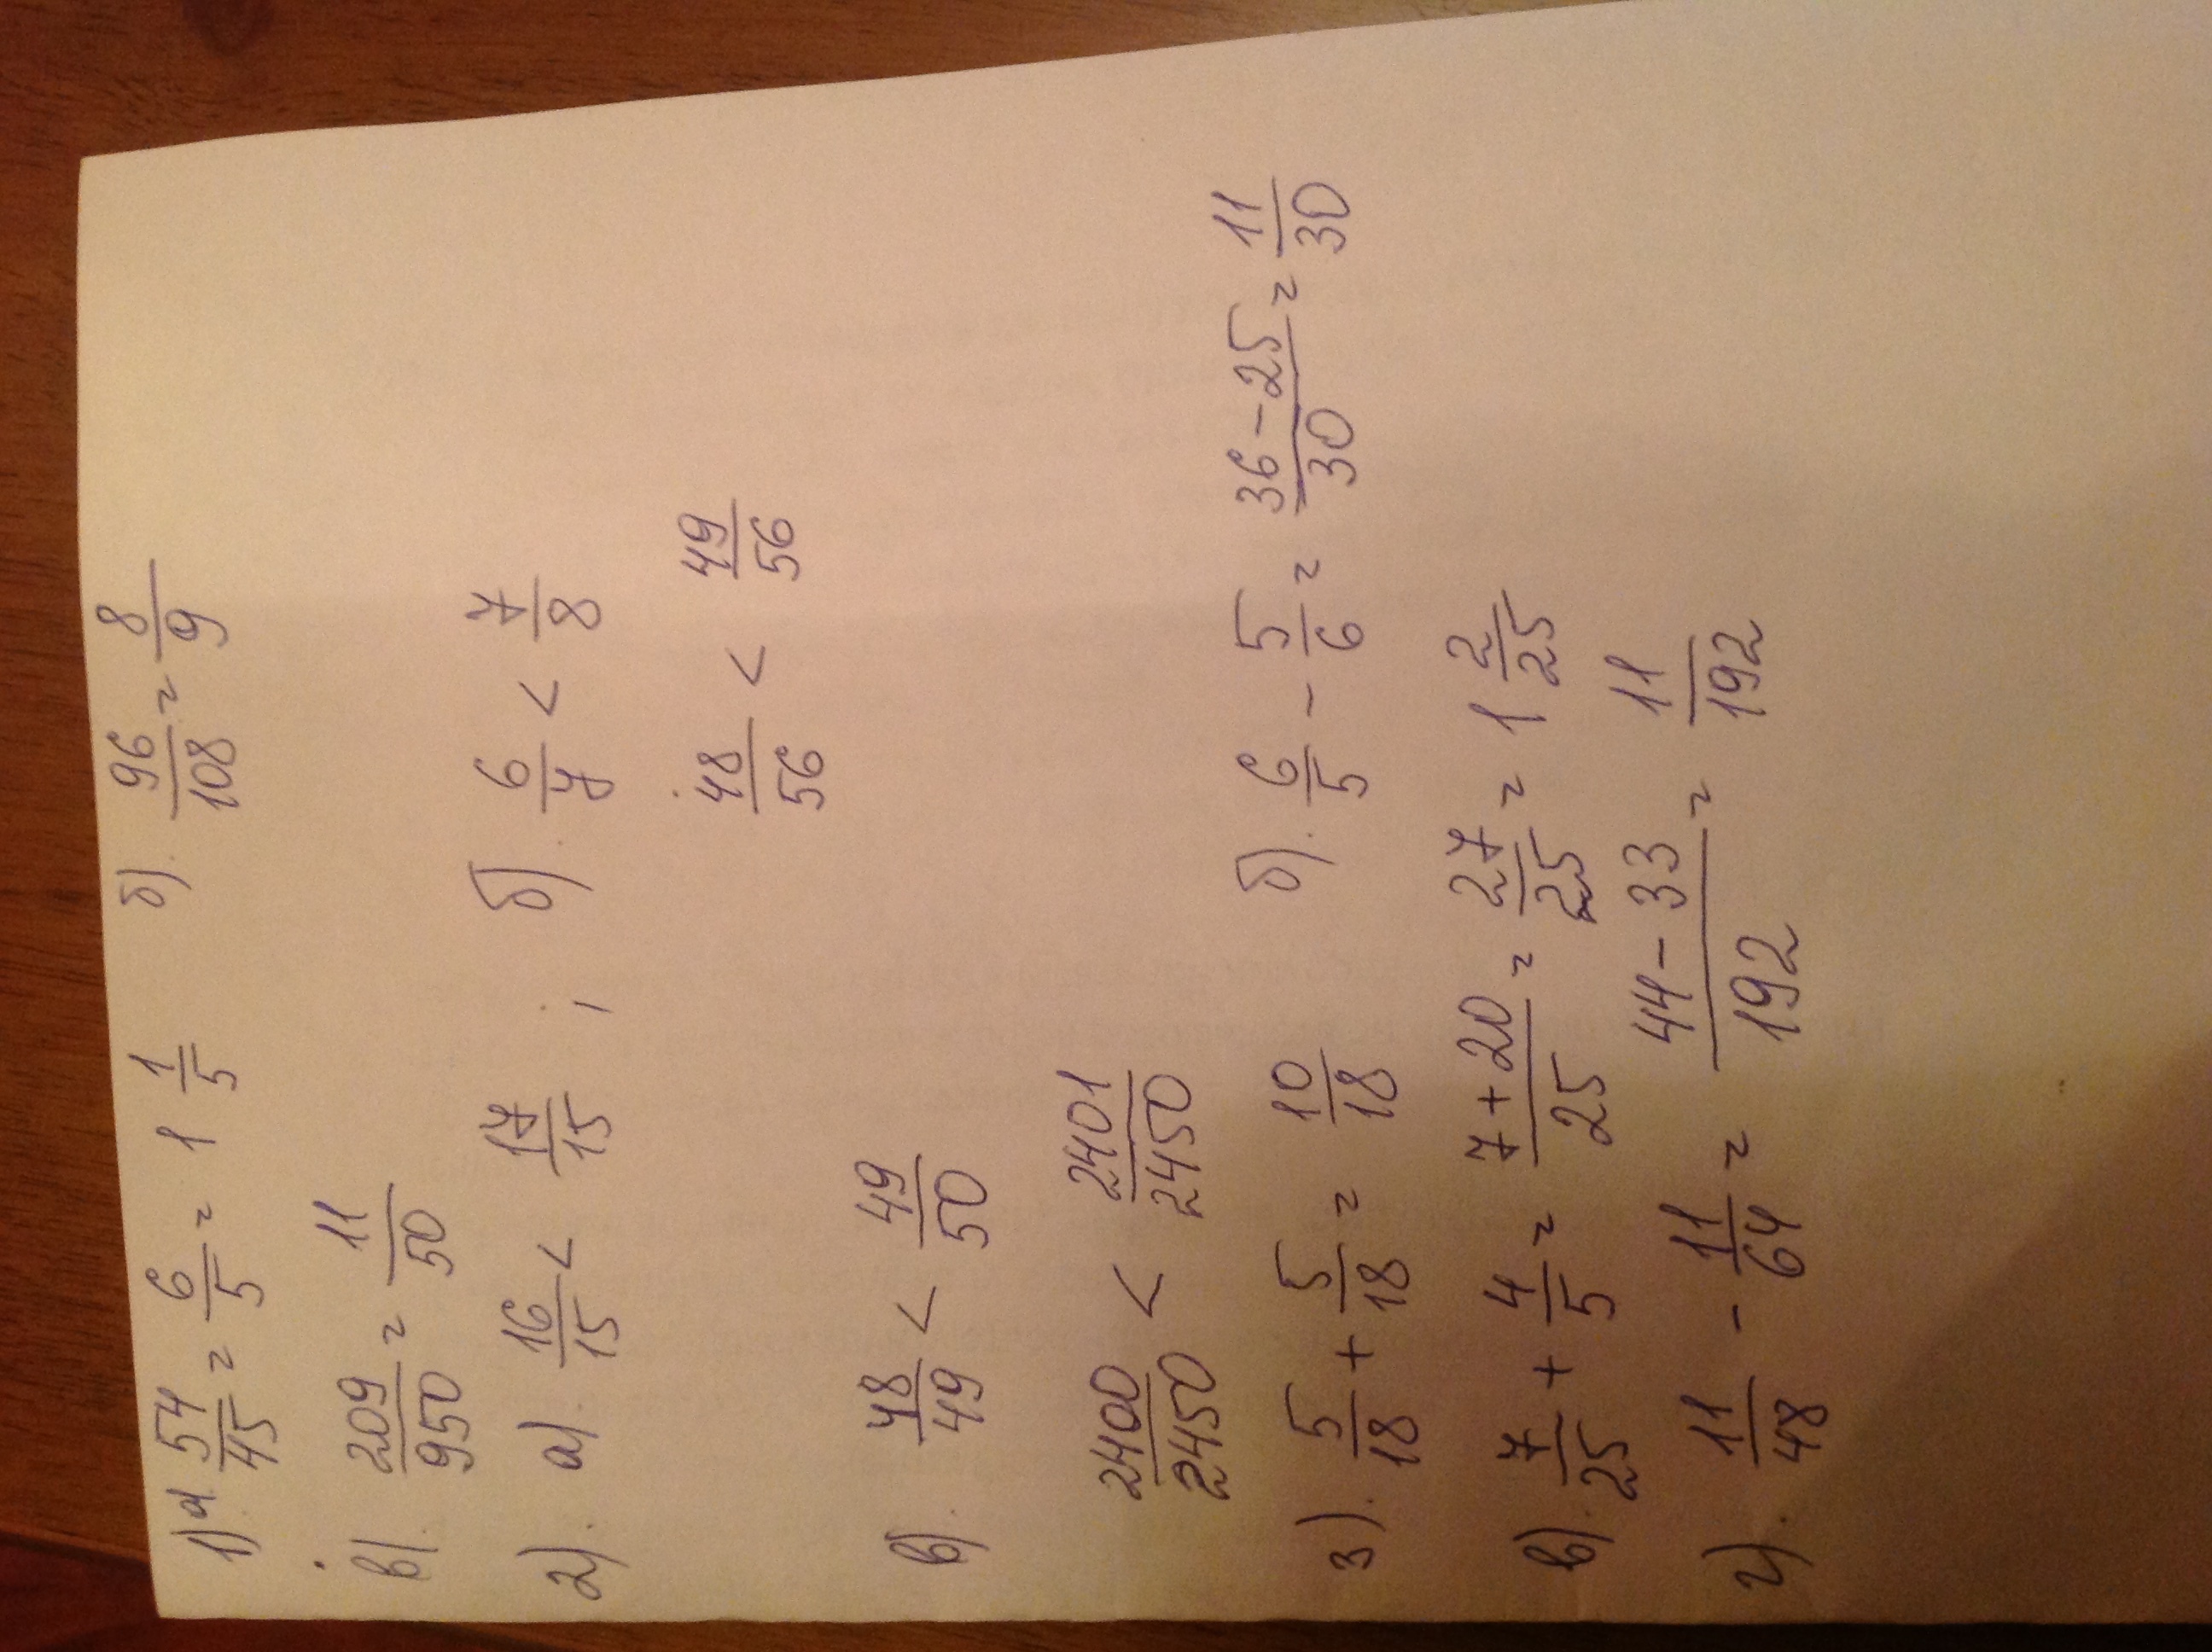 1) а. 54/45 = 6/5 = 1 1/5 б). 96/108 = 8/9
в). 209/950 = 11/50
2). а). 16/15 < 17/15 ; б). 6/7 < 7/8
48/56 < 49/56
в). 48/49 < 49/50
2400/2450 < 2401/2450
3). 5/18 + 5/18 = 10/18 б). 6/5 - 5/6 = 36-25/30 = 11/30
в). 7/25 + 4/5 = 7+20/25 = 27/25 = 1 2/25
г). 11/48 - 11/64 = 44-33/192 = 11/192